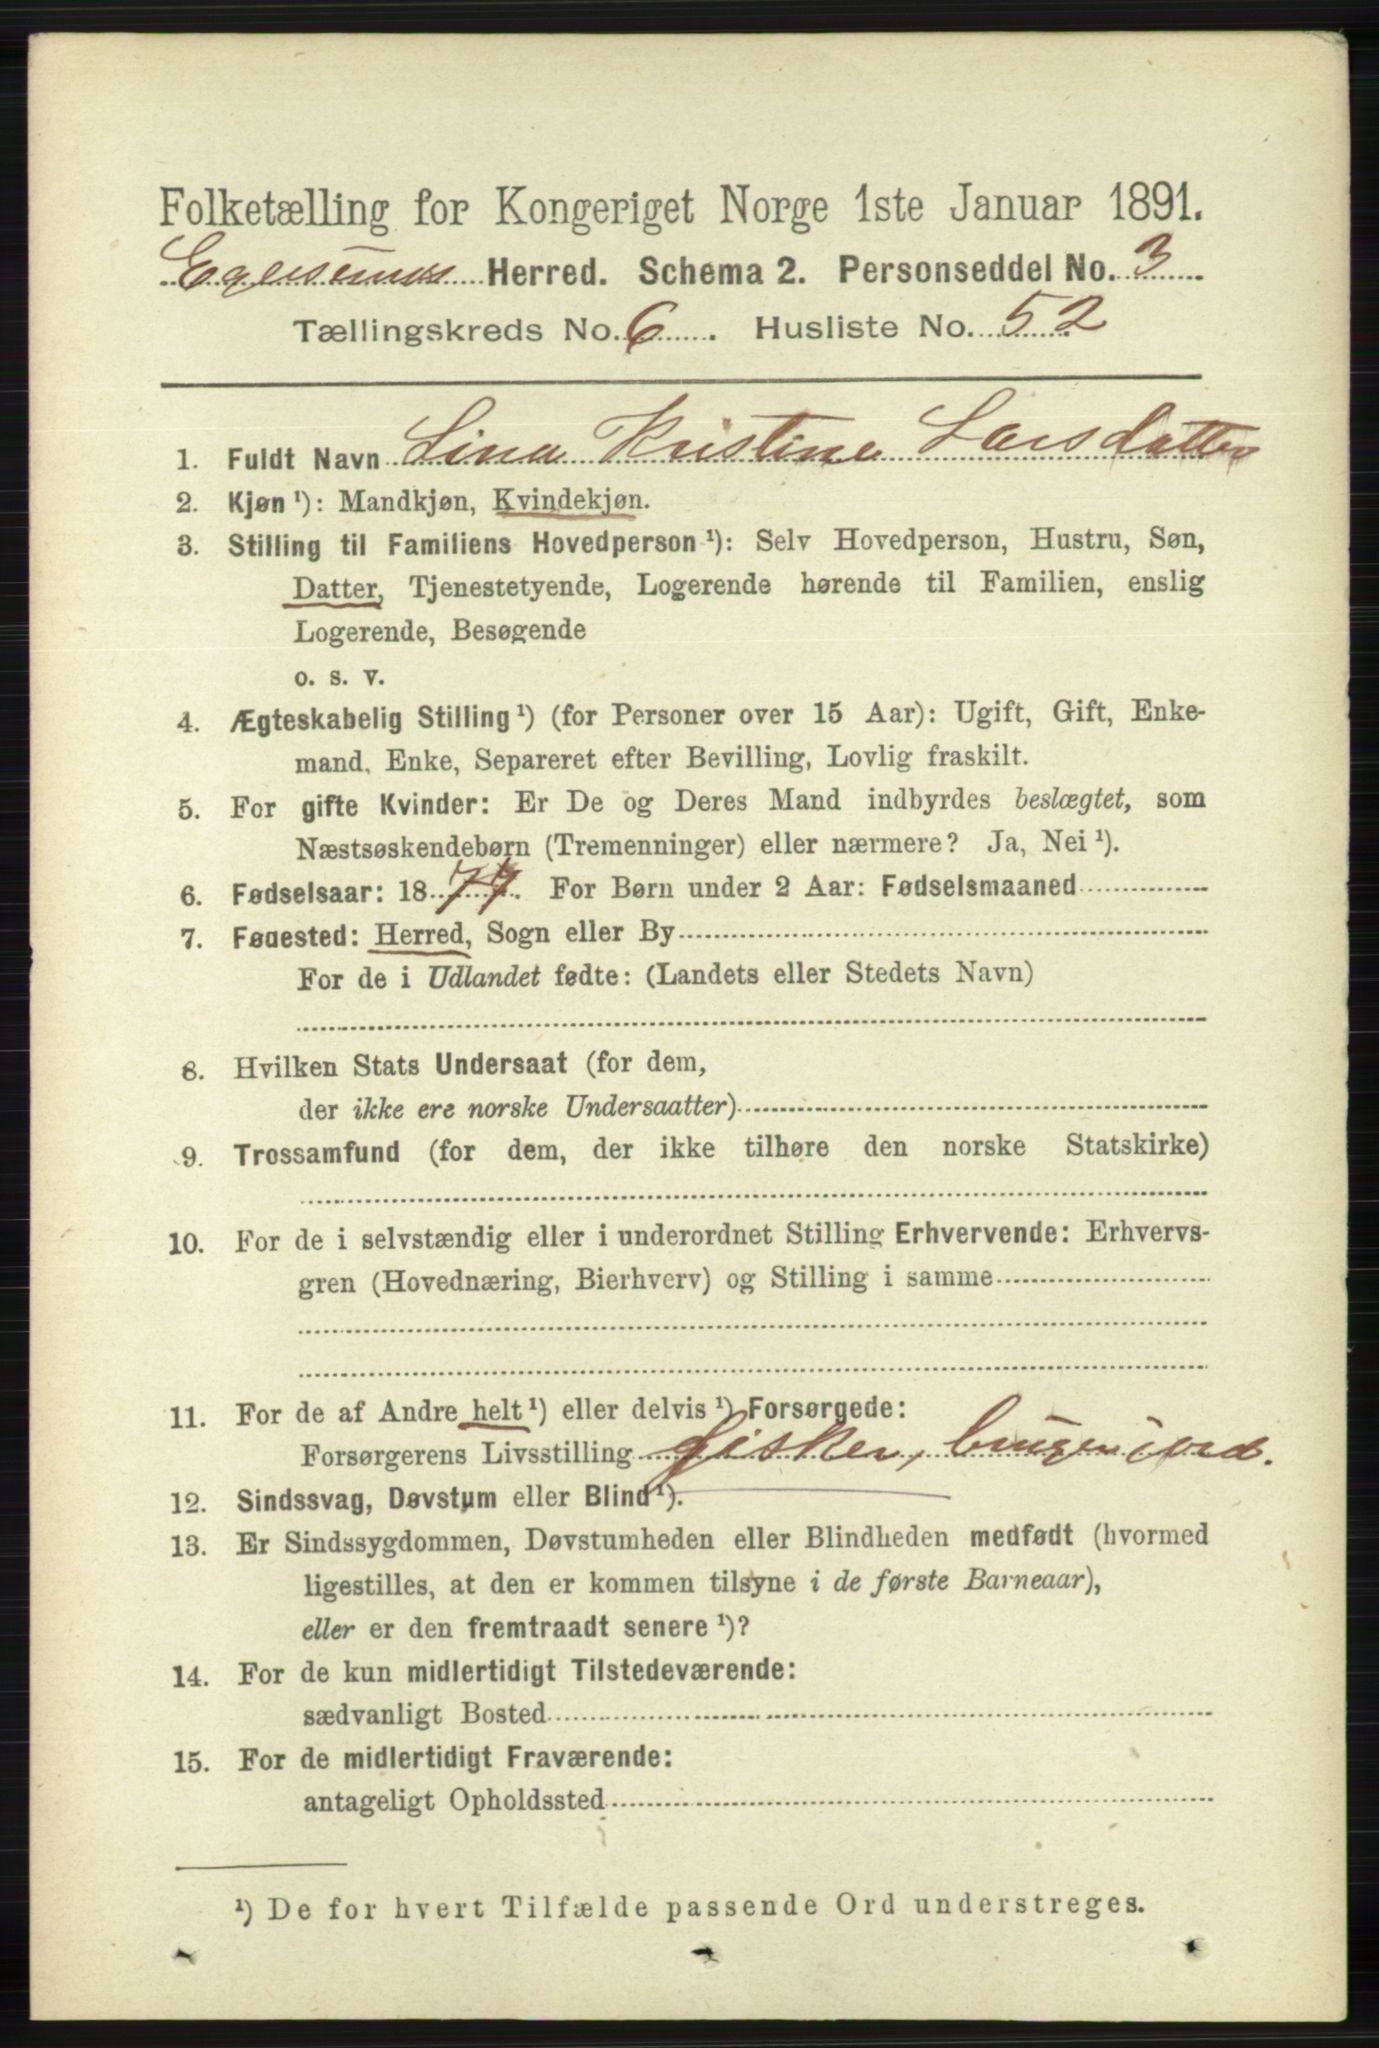 Folketælling for Kongeriget Norge 1ste Januar 1891.
Egersunds Herred. Schema 2. Personseddel No. 3
Tællingskreds No. 6. Husliste No. 52
1. Fuldt Navn Lina Kristine Larsdatter
2. Kjøn ¹): Mandkjøn, Kvindekjøn.
3. Stilling til Familiens Hovedperson ¹): Selv Hovedperson, Hustru, Søn,
Datter, Tjenestetyende, Logerende hørende til Familien, enslig
Logerende, Besøgende
o. s. v.
4. Ægteskabelig Stilling ¹) (for Personer over 15 Aar): Ugift, Gift, Enke-
mand, Enke, Separeret efter Bevilling, Lovlig fraskilt.
5. For gifte Kvinder: Er De og Deres Mand indbyrdes beslægtet, som
Næstsøskendebørn (Tremenninger) eller nærmere? Ja, Nei ¹).
6. Fødselsaar: 1877. For Børn under 2 Aar: Fødselsmaaned
7. Fødested: Herred, Sogn eller By
For de i Udlandet fødte: (Landets eller Stedets Navn)
8. Hvilken Stats Undersaat (for dem,
der ikke ere norske Undersaatter)
9. Trossamfund (for dem, der ikke tilhøre den norske Statskirke)
10. For de i selvstændig eller i underordnet Stilling Erhvervende: Erhvervs-
gren (Hovednæring, Bierhverv) og Stilling i samme
11. For de af Andre helt ¹) eller delvis ¹) Forsørgede:
Forsørgerens Livsstilling fisker, bruger jord.
12. Sindssvag, Døvstum eller Blind ¹).
13. Er Sindssygdommen, Døvstumheden eller Blindheden medfødt (hvormed
ligestilles, at den er kommen tilsyne i de første Barneaar),
eller er den fremtraadt senere ¹)?
14. For de kun midlertidigt Tilstedeværende:
sædvanligt Bosted
15. For de midlertidigt Fraværende:
antageligt Opholdssted
¹) De for hvert Tilfælde passende Ord understreges.